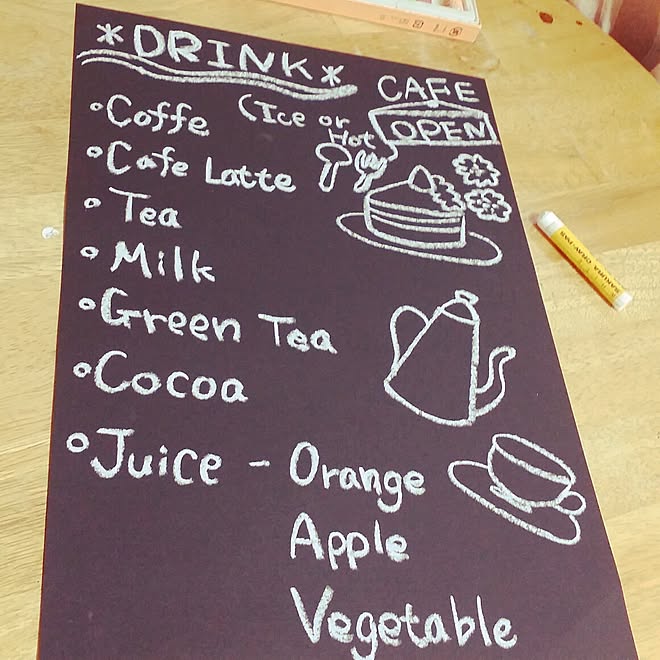 *DRINK*
CAFE
OPEN
Coffe (Ice or Hot
Cafe Latte
Tea
Milk
Green Tea
Cocoa
Juice - Orange
Apple
Vegetable
SAKURA CRAY-PAS